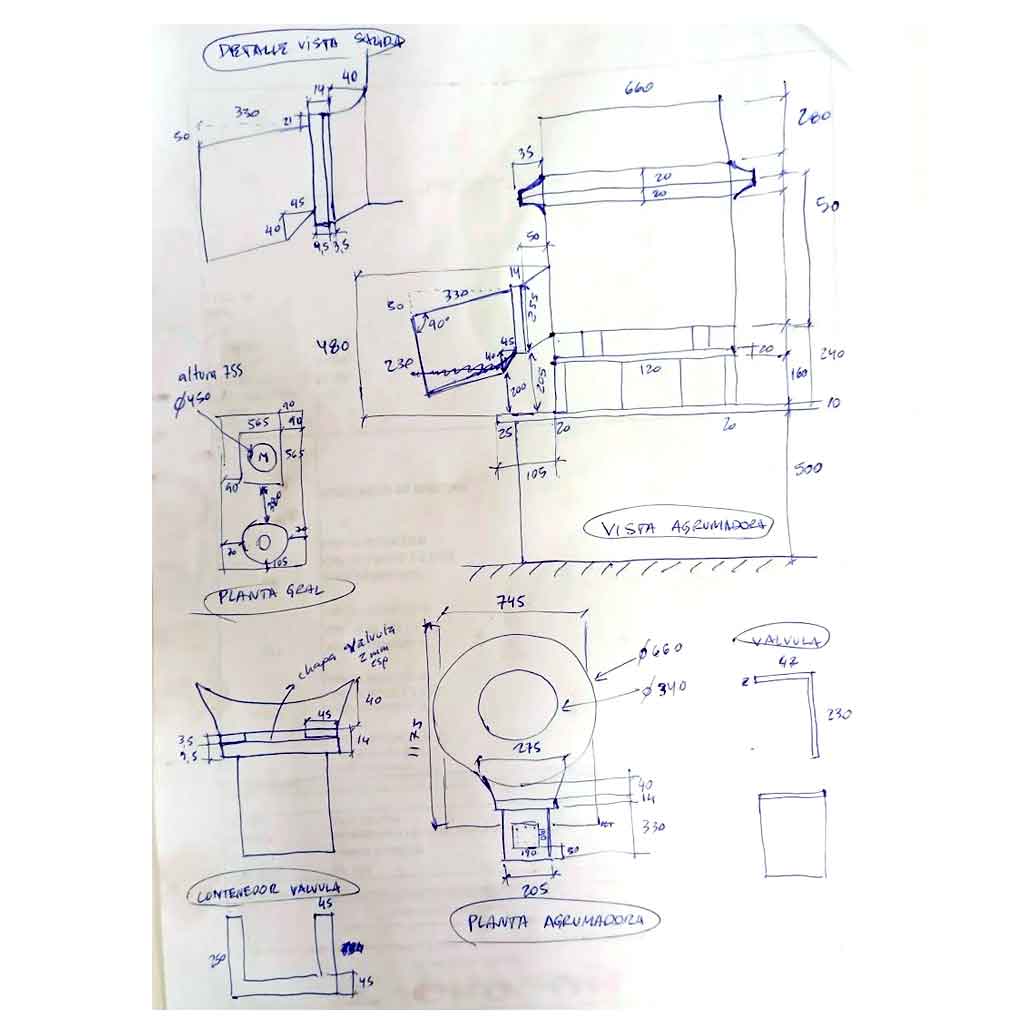 DETALLE VISTA SALIDA
40
14
330
21
50
45
40
9,5 3,5
660
280
35
20
20
50
50
14
330
50
90°
255
480
45
40
230
200
205
20
240
120
160
10
25
20
20
105
500
VISTA AGRUMADORA
altura 755
Ø450
90
565
90
M
565
90
380
20
20
105
PLANTA GRAL
chapa valvula
2 mm
esp
40
45
3,5
14
9,5
CONTENEDOR VALVULA
45
250
45
745
Ø660
Ø340
275
40
14
330
190
50
205
PLANTA AGRUMADORA
VALVULA
42
2
230